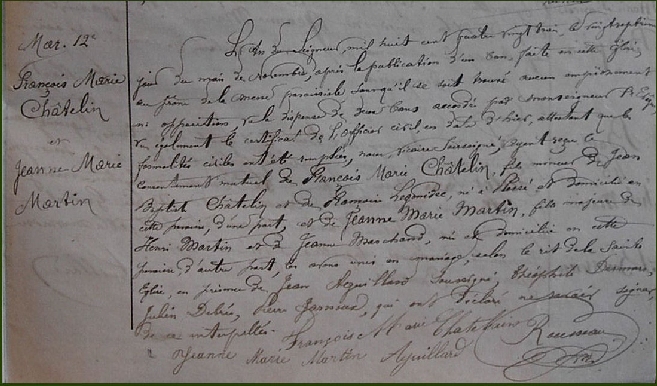 Mar. 12e
François Marie
Châtelin
et
Jeanne Marie
Martin
L'An du Seigneur, mil huit cent quatre vingt trois, le vingt septième
jour du mois de Novembre, après la publication d'un ban, faite en cette Eglise,
au prône de la messe paroissiale sans qu'il se soit trouvé aucun empêchement
ni opposition vu la dispense de deux bans accordée par Monseigneur
vu également le certificat de l'Officier civil, en date d'hier, attestant que les
formalités civiles ont été remplies, nous, vicaire soussigné, ayant reçu le
consentement mutuel de François Marie Châtelin, fils mineur de Jean
Baptiste Châtelin et de né à et domicilié en
cette paroisse, d'une part, et de Jeanne Marie Martin, fille majeure de
Henri Martin et de Jeanne Marchand, née et domiciliée en cette
paroisse d'autre part, les avons unis en mariage selon le rit de la Sainte
Eglise, en présence de Jean Aguillard soussigné, Théophile
Julien Pierre qui ont déclaré ne savoir signer,
de ce interpellés.
François Marie Chatellain
Jeanne Marie Martin Aguillard